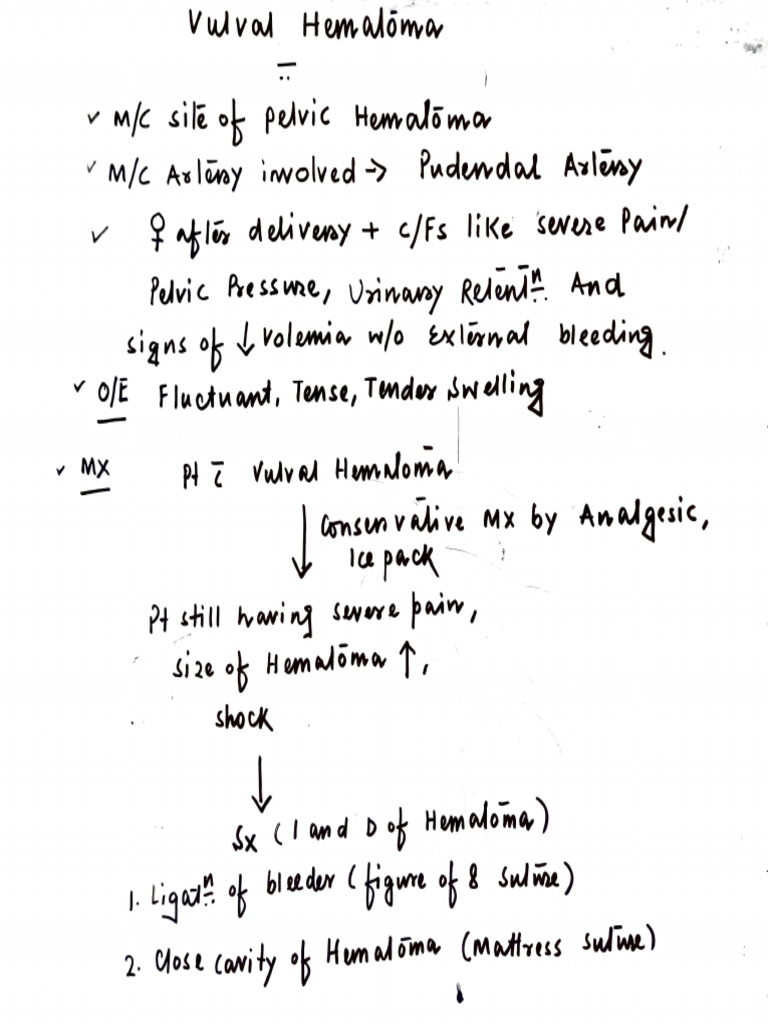 Vulval Hematoma
✓ M/C site of pelvic Hematoma
✓ M/C Artery involved → Pudendal Artery
✓ ♀ after delivery + C/Fs like severe Pain/
Pelvic Pressure, Urinary Retentⁿ And
signs of ↓ volemia w/o External bleeding.
✓ O/E Fluctuant, Tense, Tender Swelling
✓ Mx Pt c̄ Vulval Hematoma
↓ Conservative Mx by Analgesic,
Ice pack
Pt still having severe pain,
size of Hematoma ↑,
shock
↓
Sx (I and D of Hematoma)
1. Ligatⁿ of bleeder (figure of 8 suture)
2. Close cavity of Hematoma (Mattress suture)